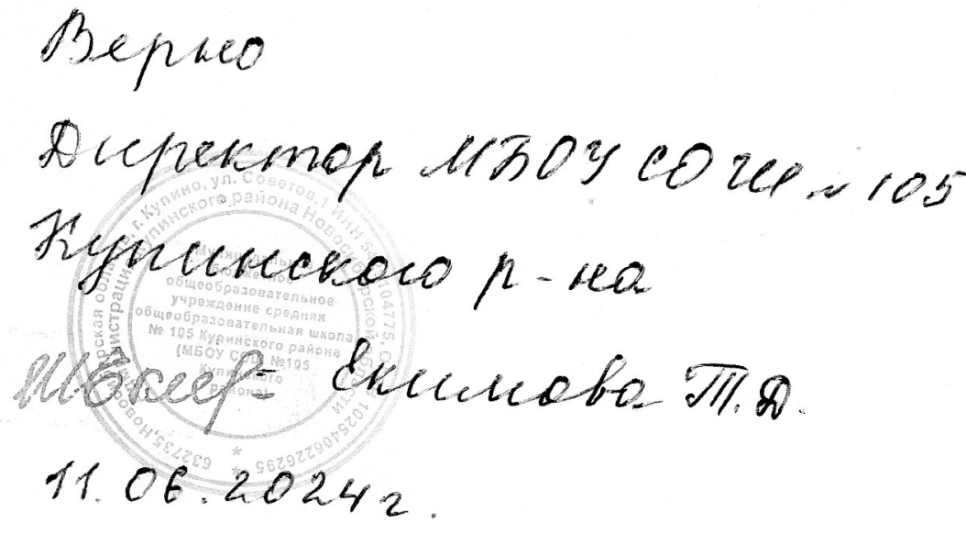 Верно
Директор МБОУ СОШ № 105
Купинского р-на
Екимова Т.Д.
11.06.2024 г.
632735, Новосибирская область, г. Купино, ул. Советов, 1 ИНН
1025406226295
Администрация Купинского района Новосибирской области
Муниципальное
бюджетное
общеобразовательное
учреждение средняя
общеобразовательная школа
№ 105 Купинского района
(МБОУ СОШ №105
Купинского
района)